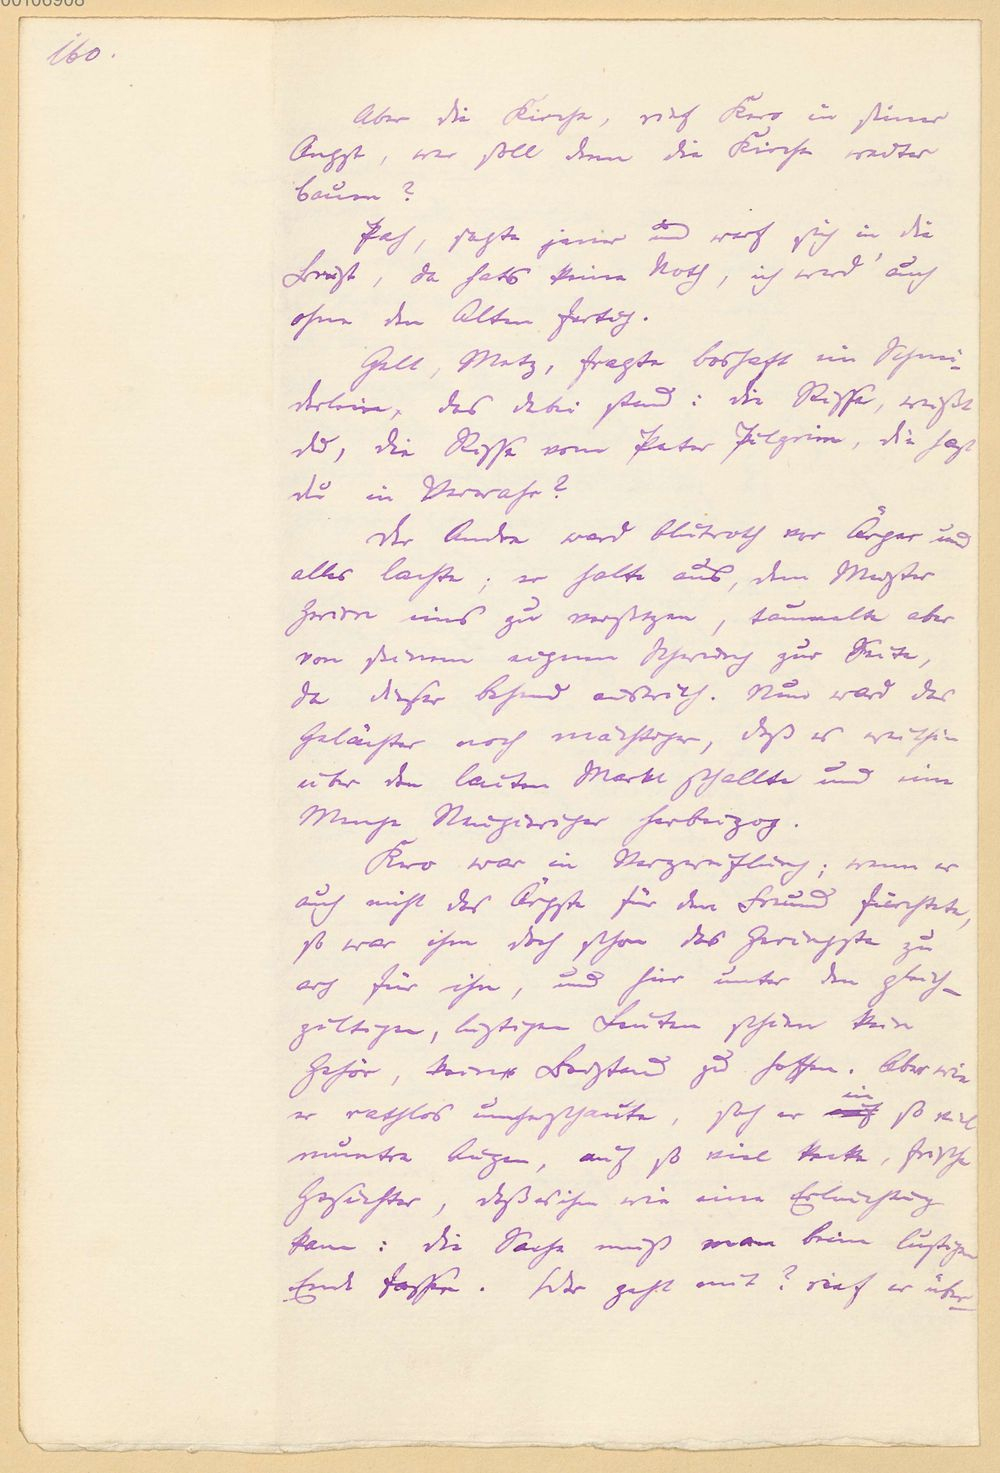 60106968
160.
Aber die Kirche, rief Kero in seiner
Angst, wer soll denn die Kirche weiter
bauen?
Pah, sagte jener und warf sich in die
Brust, da hats keine Noth, ich werd' auch
ohne den Alten fertig.
Gelt, Metz, fragte boshaft ein Schnei-
derlein, das dabei stand: die Risse, weißt
du, die Risse vom Pater Pilgrim, die hast
du in Verwahr?
Der Andre ward blutroth vor Ärger und
alles lachte; er holte aus, dem Meister
Zwirn eins zu versetzen, taumelte aber
von seinem eignen Schwung zur Seite,
da dieser behend auswich. Nun ward das
Gelächter noch mächtiger, daß es weithin
über den lauten Markt schallte und eine
Menge Neugieriger herbeizog.
Kero war in Verzweiflung; wenn er
auch nicht das Ärgste für den Freund fürchtete,
so war ihm doch schon das Geringste zu
arg für ihn, und hier unter den gleich-
gültigen, lustigen Leuten schien kein
Gehör, kein Beistand zu hoffen. Aber wie
er rathlos umherschaute, sah er in so viel
muntre Augen, auf so viel kecke, frische
Gesichter, daß es ihm wie eine Erleuchtung
kam: die Sache muß man beim lustigen
Ende fassen. Wer geht mit? rief er über-